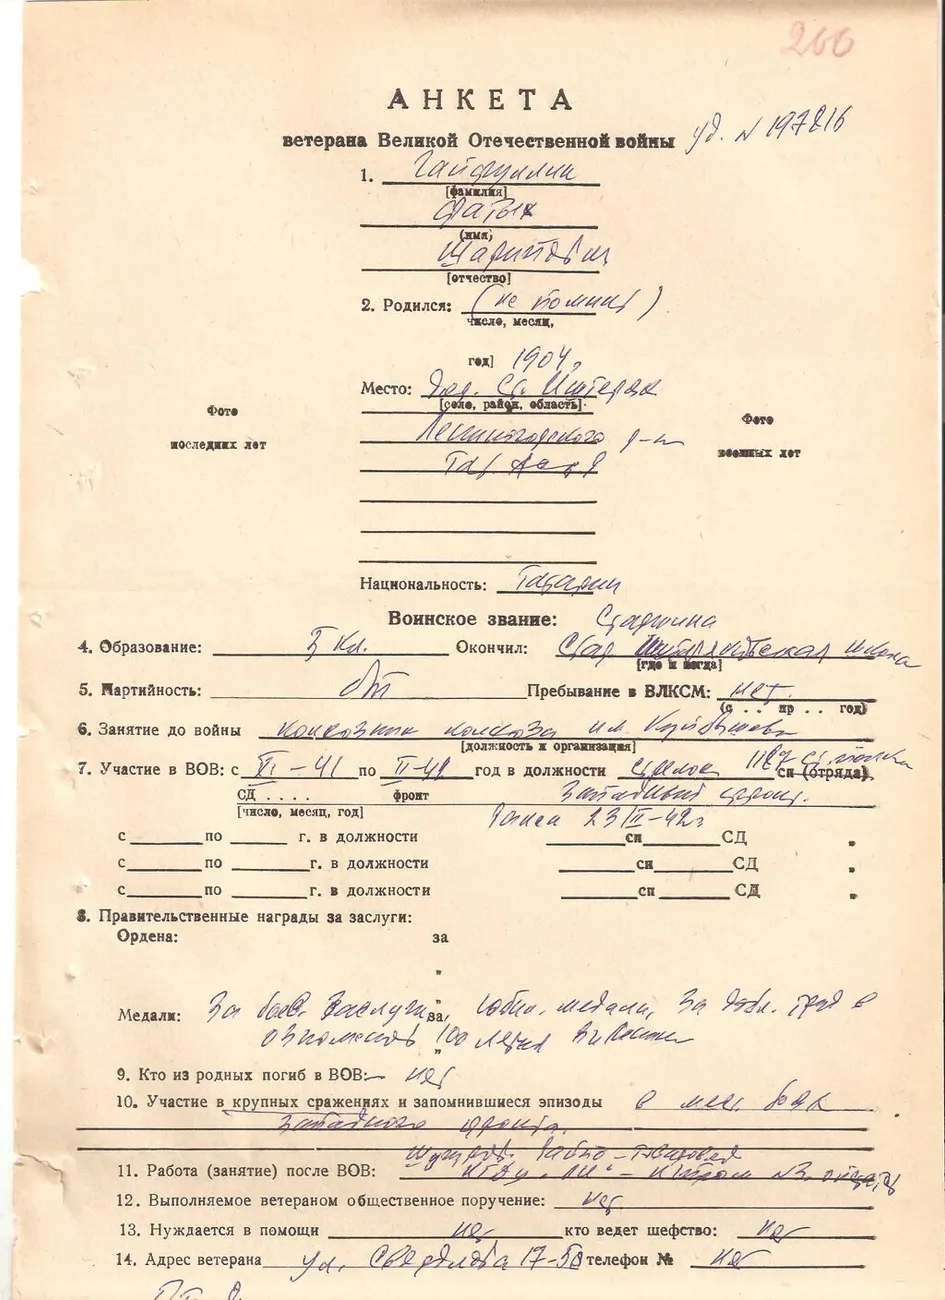 266
АНКЕТА
ветерана Великой Отечественной войны уд. № 197216
1. Гайфуллин
[фамилия]
Фатых
(имя)
Шарипович
[отчество]
2. Родился: (не помнит)
число, месяц,
год] 1904,
Место: дер. Ст. Иштеряк
[село, район, область]
Фото Фото
Лениногорского р-на
последних лет военных лет
Национальность: Татарин
Воинское звание: Старшина
4. Образование: 3 кл. Окончил: Стар Иштеряковская школа
[где и когда]
5. Партийность: б/п Пребывание в ВЛКСМ: нет.
(с . . пр . . год)
6. Занятие до войны колхозник колхоза им. Куйбышева
[должность и организация]
7. Участие в ВОВ: с XI – 41 по II – 42 год в должности стрелок сп (отряда),
СД . . . . фронт Западный фронт.
[число, месяц, год] Ранен 23/II – 42 г
с по г. в должности сп СД "
с по г. в должности сп СД "
с по г. в должности сп СД "
8. Правительственные награды за заслуги:
Ордена: за
"
"
Медали: За боев. заслуги, за юбил. медали, За добл. труд в
ознаменов 100 летия В.И. Ленина
"
9. Кто из родных погиб в ВОВ: – нет
10. Участие в крупных сражениях и запомнившиеся эпизоды в
Западного фронта.
11. Работа (занятие) после ВОВ:
12. Выполняемое ветераном общественное поручение: нет
13. Нуждается в помощи нет кто ведет шефство: нет
14. Адрес ветерана ул. Свердлова 17-58 телефон № нет